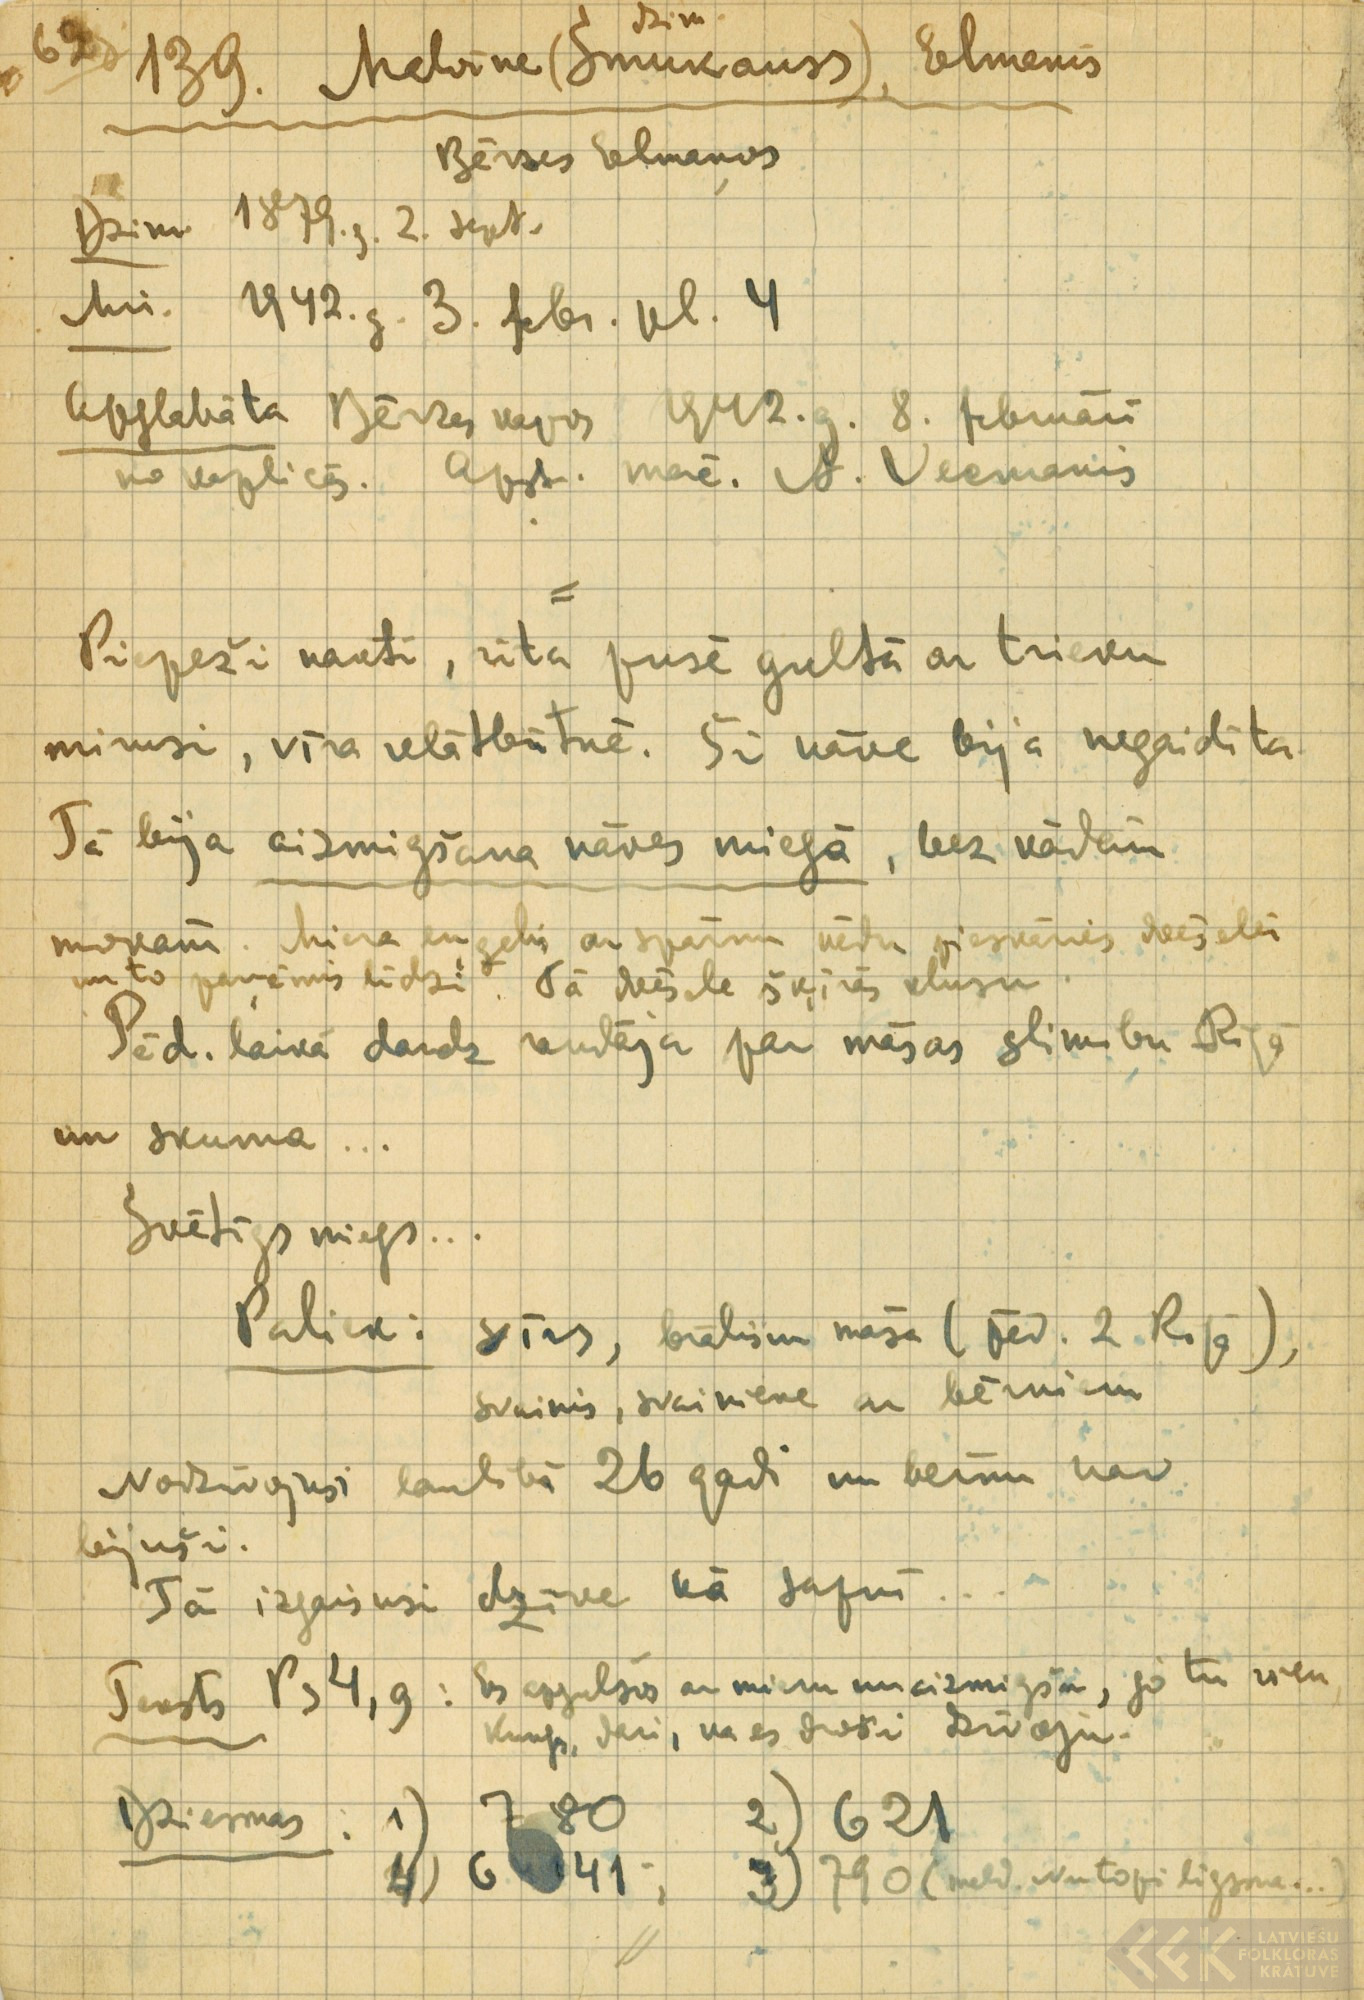 62
139. Malvīne (dzim. Šmukauss), Eelmanis
Bērzes Eelmaņos
Dzim. 1879. g. 2. sept.
Mir. 1942. g. 3. febr. pl. 4
Apglabāta Bērzes kapos 1942. g. 8. februārī
no kapličas. Apgl. māc. A. Vecmanis
=
Piepeži naktī, rīta pusē gultā ar trieku
mirusi, vīra klātbūtnē. Šī nāve bija negaidīta.
Tā bija aizmigšana nāves miegā, bez kādām
mokām. Miera eņģelis ar spārnu vēdu pieskāries dvēselei
un to paņēmis līdzi. Tā dvēsele šķīrās klusu.
Pēd. laikā daudz raudāja par māsas slimību Rīgā
un skuma ...
Svētīgs miegs ...
Paliek: vīrs, brālis un māsa (pēd. 2 Rīgā),
svainis, svainiene ar bērniem
Nodzīvojusi laulībā 26 gadi un bērnu nav
bijuši.
Tā izgaisusi dzīve kā sapnī ...
Teksts Ps 4, 9: Es apgulšos ar mieru un aizmigšu, jo tu vien,
Kungs, dari, ka es droši dzīvoju.
Dziesmas: 1) 780 2) 621
4) 6 41; 3) 790 (meld. Nu topi līgsma ...)
LATVIEŠU
FOLKLORAS
KRĀTUVE